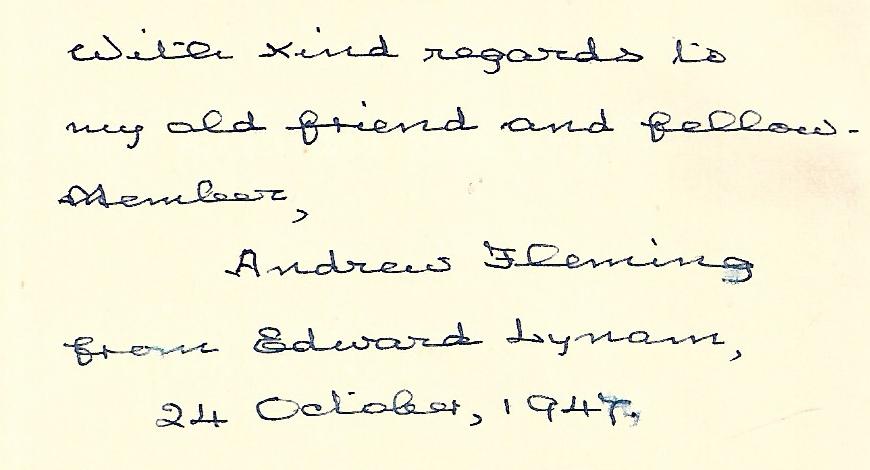 With kind regards to
my old friend and fellow-
Member,
Andrew Fleming
from Edward Lynam,
24 October, 1947.